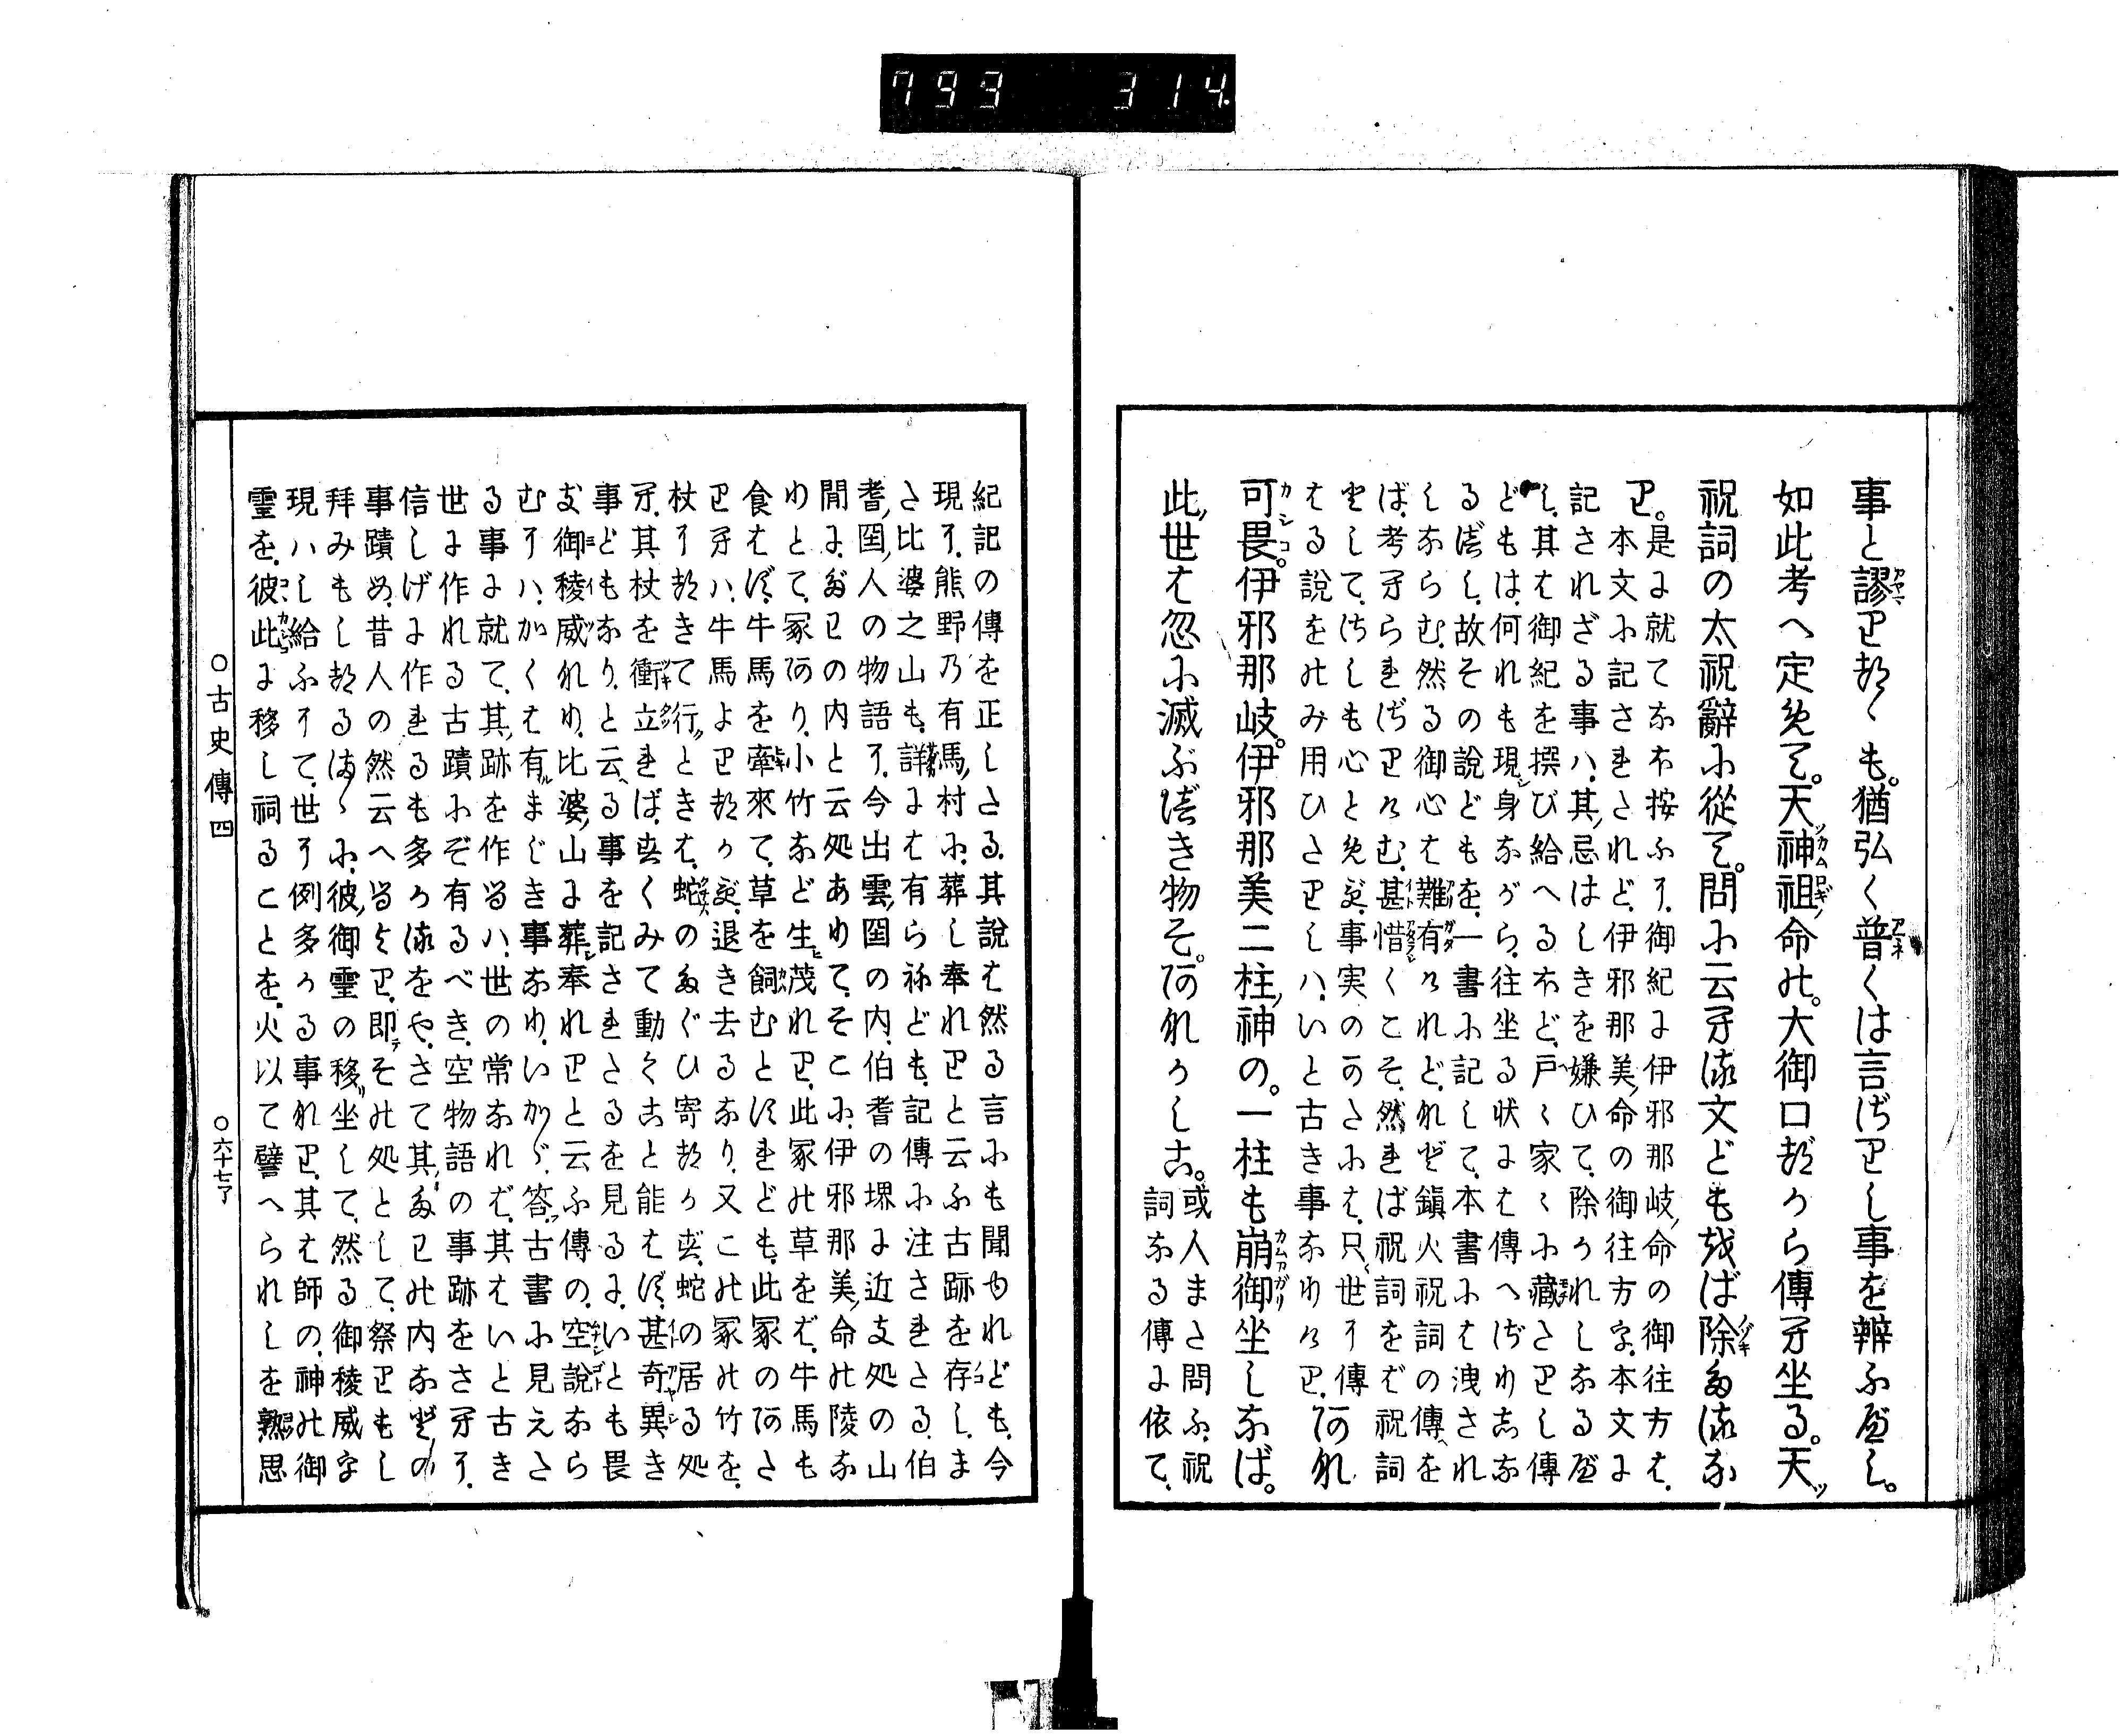 793 314
事と謬りなゝも。猶弘く普くは言がりし事を辨ふべし。
如此考へ定めて。天神祖命の。大御口ながら傳へ坐る。天
祝詞の太祝辭に從て。問に云へる文ども をば除たるな
り。是に就てなほ按ふに、御紀に伊邪那岐命の御往方は、
本文に記されたれど、伊邪那美命の御往方を、本文に
記されざる事ハ、其忌はしきを嫌ひて、除かれしなるべ
し、其は御紀を撰び給へるほど、戸〻家〻に藏たりし傳
どもは、何れも現身ながら、往坐る状には傳へがりけな
るべし、故その說どもを、一書に記して、本書には洩され
しならむ、然る御心は難有けれど、れど鎭火祝詞の傳を
ば、考へられざりけむ、甚惜くこそ、然れば祝詞をば祝詞
として、はしも心とめず、事実のかたには、只世に傳
はる說をのみ用ひたりしハ、いと古き事なりけり、あれ
可畏。伊邪那岐。伊邪那美二柱神の。一柱も崩御坐しなば。
此世は忽に滅ぶべき物そ。あれかしこ。或人また問ふ、祝
詞なる傳に依て、
紀記の傳を正したる、其說は然る言にも聞ゆれども、今
現に、熊野乃有馬村に、葬し奉れりと云ふ古跡を存し、ま
た比婆之山も、詳には有らねども、記傳に注されたる、伯
耆國人の物語に、今出雲國の内、伯耆の堺に近き処の山
間に、たわの内と云処ありて、そこに、伊邪那美命の陵な
りとて、冢あり、小竹など生茂れり、此冢の草をば、牛馬も
食はず、牛馬を牽來て、草を飼むとすれども、此冢のあた
りへハ、牛馬よりなかず、退き去るなり、又この冢の竹を、
杖になきて行ときは、蛇のたぐひ寄なかず、蛇の居る処
へ、其杖を衝立れば、すくみて動くこと能はず、甚奇異き
事どもなり、と云へる事を記されたるを見るに、いとも畏
き御稜威なり、比婆山に葬奉れりと云ふ傳の、空說なら
むにハ、かくは有まじき事なり、いかゞ、答、古書に見えた
る事に就て、其跡を作るハ、世の常なれば、其はいと古き
世に作れる古蹟にぞ有るべき、空物語の事跡をさへに、
信しげに作れるも多かるをや、さて其たわの内などの
事蹟も、昔人の然云へるより、即その処として、祭りもし
拜みもしなるまゝに、彼御靈の移坐して、然る御稜威を
現ハし給ふにて、世に例多かる事なり、其は師の、神の御
靈を、彼此に移し祠ることを、火以て譬へられしを熟思
○古史傳四 ○六十七了